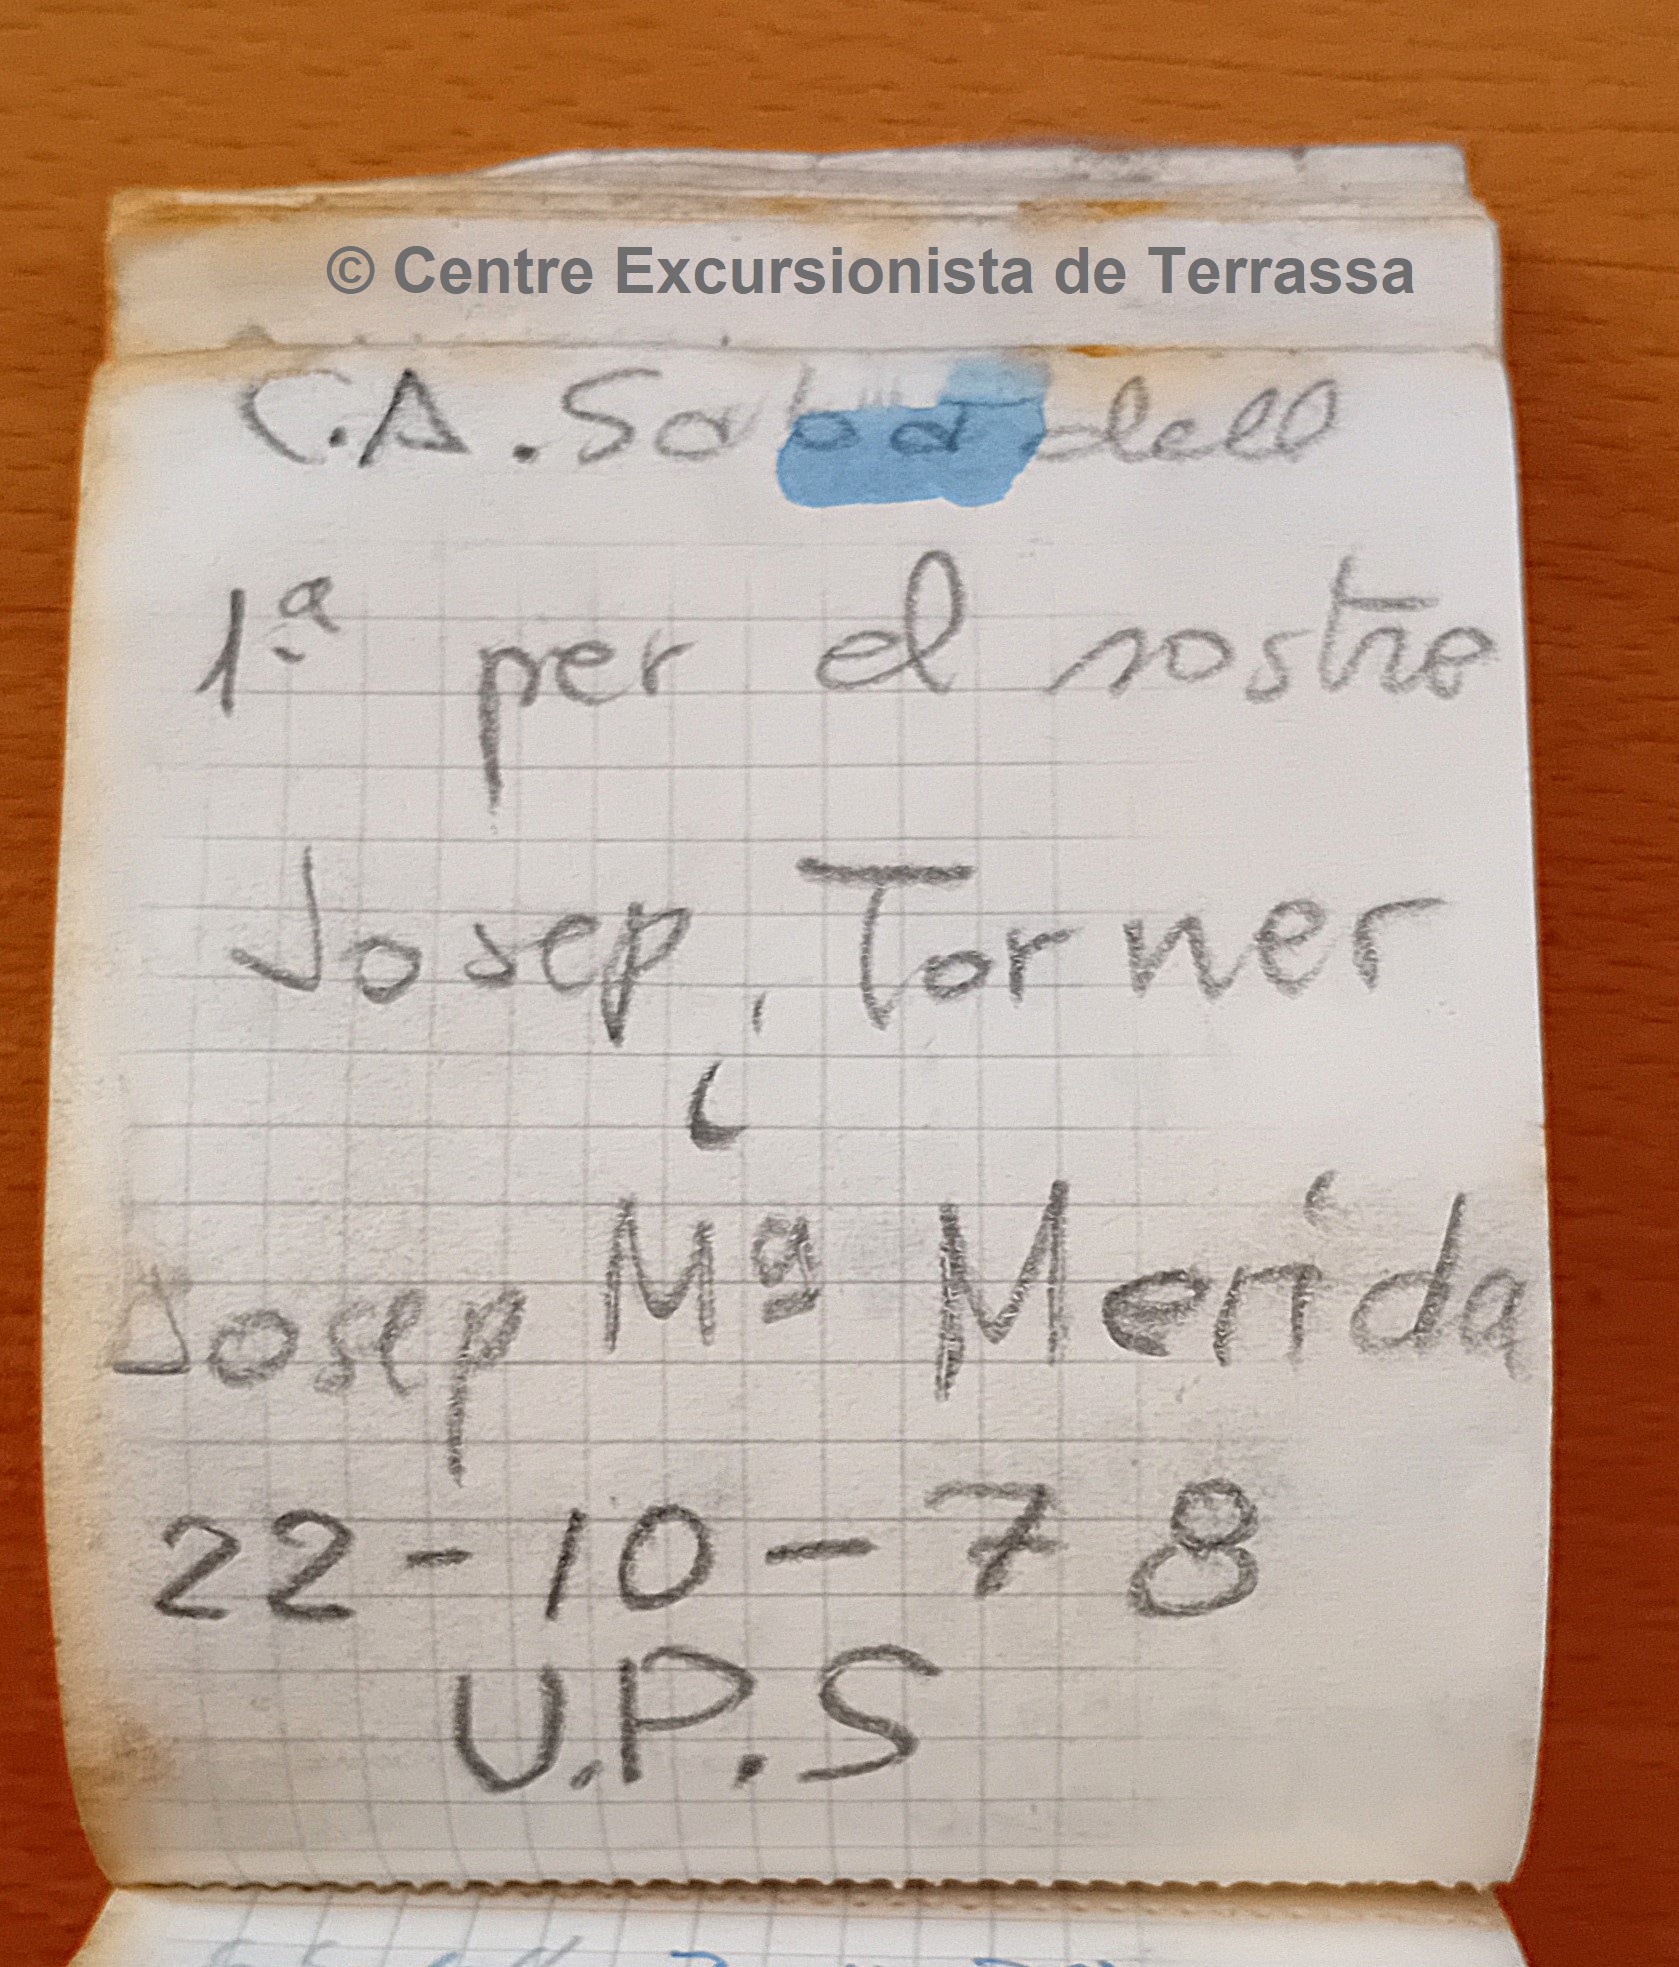 © Centre Excursionista de Terrassa
C.A. Sabadell
1ª per el sostre
Josep, Torner
i
Josep Mª Merída
22-10-78
U.P.S